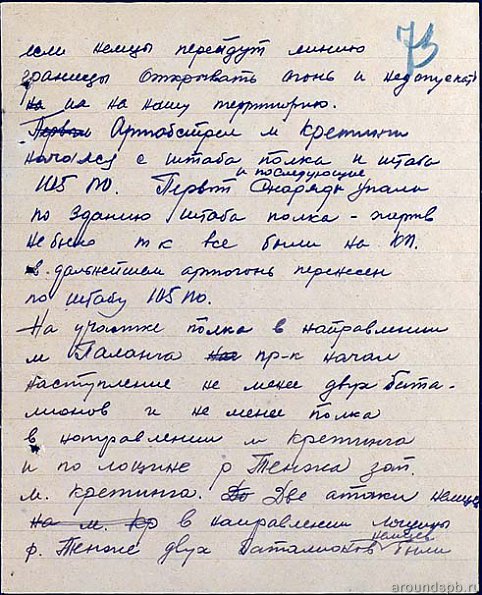 73
если немцы перейдут линию
границы открывать огонь и недопускать
их на нашу территорию.
Артобстрел м Кретинги
начался с штаба полка и штаба
105 ПО. Первый и последующие снаряды упали
по зданию штаба полка - жертв
не было т к все были на КП.
в дальнейшем артогонь перенесен
по штабу 105 ПО.
На участке полка в направлении
м Паланга пр-к начал
наступление не менее двух бата-
лионов и не менее полка
в направлении м Кретинга
и по лощине р Тенжа зап.
м. Кретинга. Две атаки немцев
в направлении лощины
р. Тенже двух баталионов немцев были
aroundspb.ru